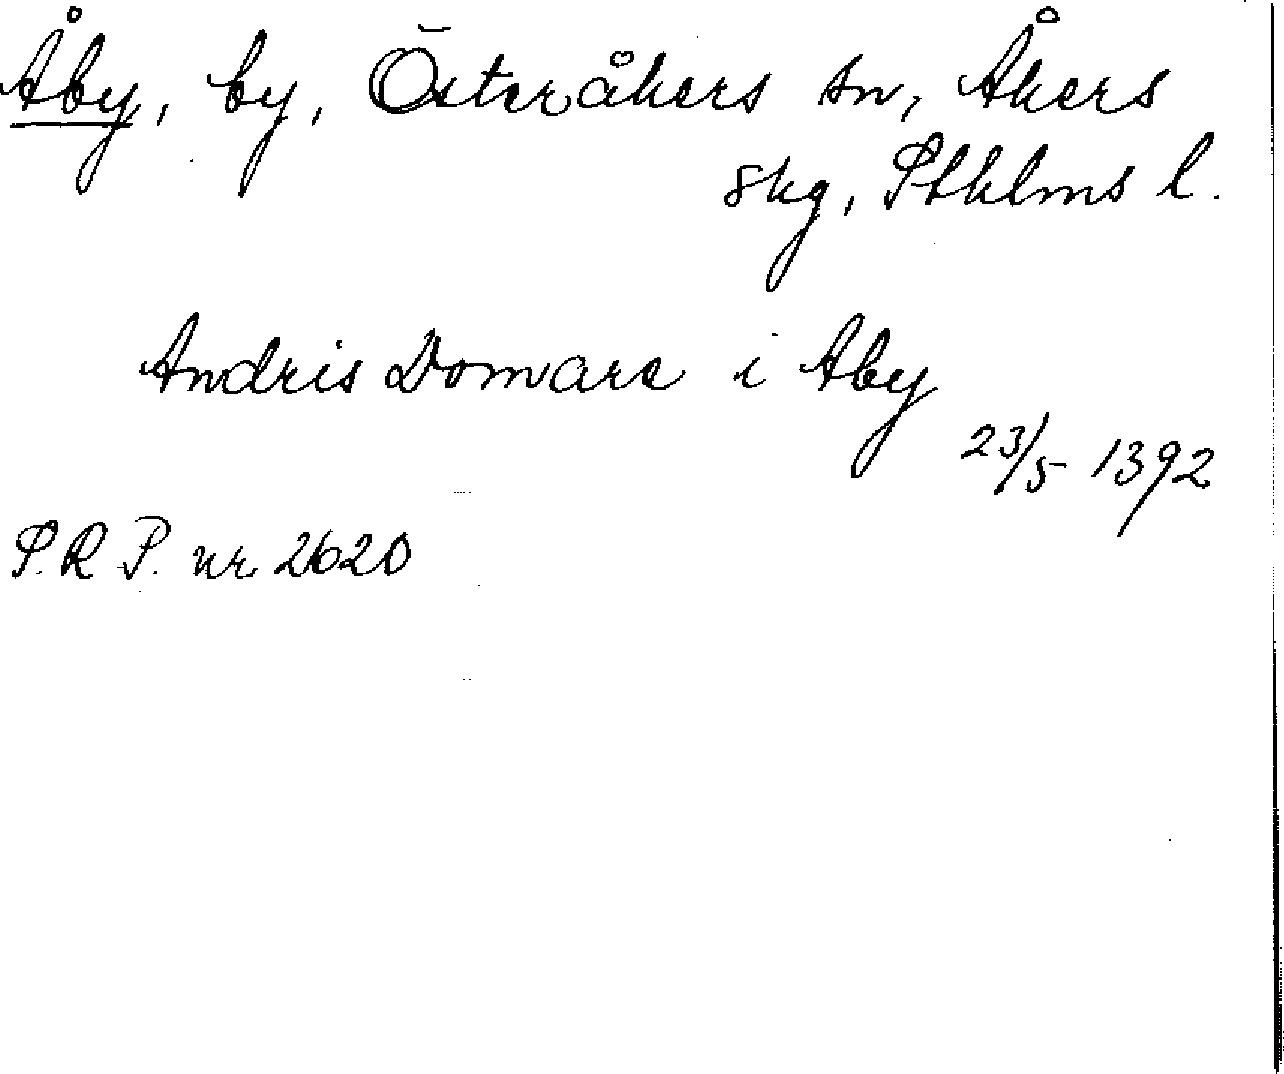 Åby, by, Österåkers sn, Åkers
skg, Sthlms l.
Andris Domare i Aby
23/5 1392
S.R.P. nr 2620